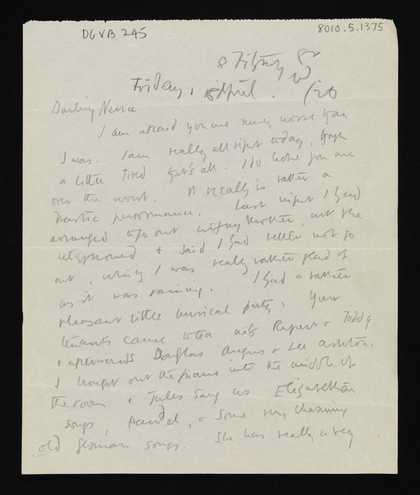 DGVB 245
8010.5.1375
8 Fitzroy St
W
Friday, April. /20
Darling Nessa
I am afraid you are much worse than
I was. I am really all right today, though
a little tired that's all. I do hope you are
over the worst. It really is rather a
drastic performance. Last night I had
arranged to go out with my Mother, but she
telephoned & said I had better not go
out, which I was really rather glad of
as it was raining. I had a rather
pleasant little musical party. Your
tenants came to tea with Rupert & Teddy
& afterwards Douglas Angus & Lee Ashton.
I brought out the piano into the middle of
the room & Jules sang us Elizabethan
songs, Handel, & some very charming
old German songs. She has really a very